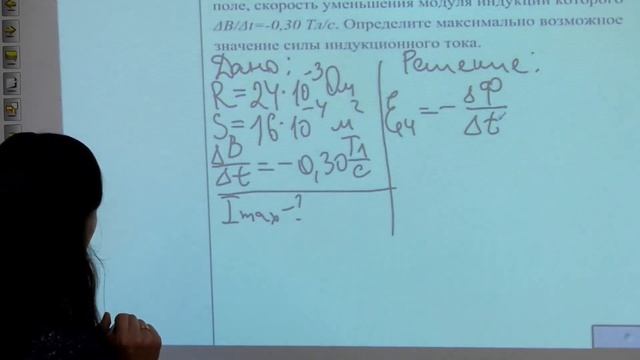 поле, скорость уменьшения модуля индукции которого
ΔB/Δt=-0,30 Тл/с. Определите максимально возможное
значение силы индукционного тока.
Дано:
R=24·10⁻³ Ом
S=16·10⁻⁴ м²
ΔB/Δt=-0,30 Тл/с
Imax-?
Решение:
=-ΔФ/Δt